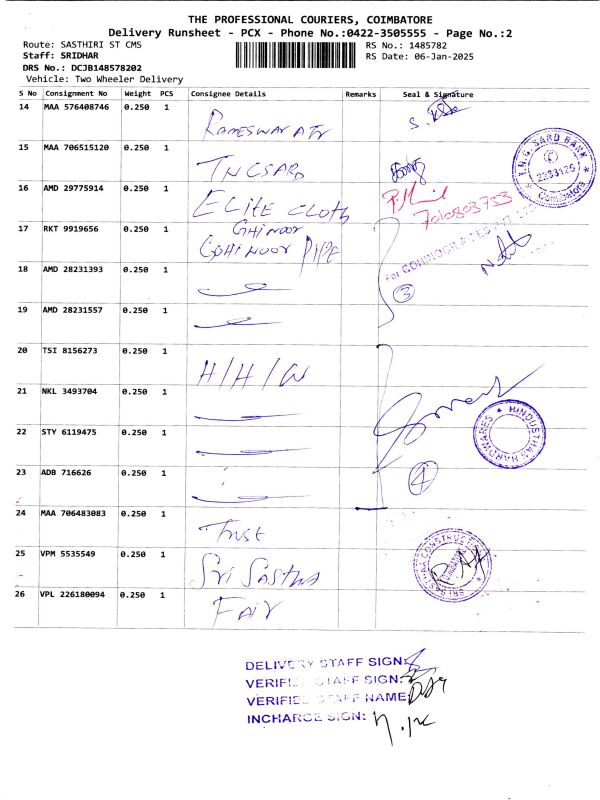 THE PROFESSIONAL COURIERS, COIMBATORE
Delivery Runsheet - PCX - Phone No.:0422-3505555 - Page No.:2
Route: SASTHIRI ST CMS
RS No.: 1485782
Staff: SRIDHAR
RS Date: 06-Jan-2025
DRS No.: DCJB148578202
Vehicle: Two Wheeler Delivery
S No Consignment No Weight PCS Consignee Details Remarks Seal & Signature
14 MAA 576408746 0.250 1
RAMESWAR A Tr
15 MAA 706515120 0.250 1
TNCSARD
16 AMD 29775914 0.250 1
ELITE CLOTH
7010803733
17 RKT 9919656 0.250 1
GHINOOR
GOHINOOR PIPE
For GOHINOOR
18 AMD 28231393 0.250 1
3
19 AMD 28231557 0.250 1
20 TSI 8156273 0.250 1
H/H/W
21 NKL 3493704 0.250 1
HINDUSTHAN HARDWARES
22 STY 6119475 0.250 1
23 ADB 716626 0.250 1
4
24 MAA 706483083 0.250 1
Trust
25 VPM 5535549 0.250 1
Sri Sastha
26 VPL 226180094 0.250 1
FAIR
DELIVERY STAFF SIGN:
VERIFIED STAFF SIGN:
VERIFIED STAFF NAME:
INCHARGE SIGN: